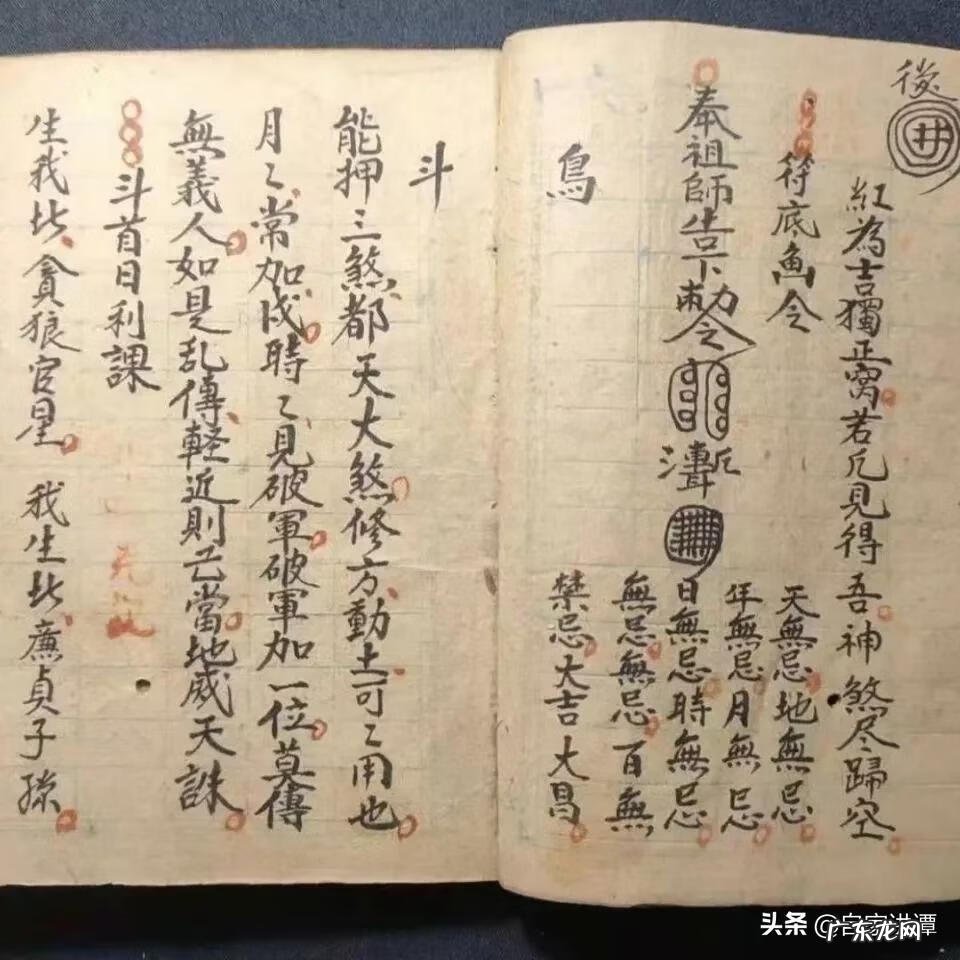 後
井
紅為吉獨正窩若凢見得吾神煞尽歸空
符底畫令
奉祖師告下勅令
天無忌地無忌
年無忌月無忌
日無忌時無忌
無忌無忌百無
禁忌大吉大昌
鳥
斗
能押三煞都天大煞修方動土可〻用也
月〻常加戌時〻見破軍破軍加一位莫傳
無義人如是乱傳軽近則亡當地威天誅
斗首日利課
生我比貪狼官星 我生比廉貞子孫
头条 @客家洪谭
广东龙网